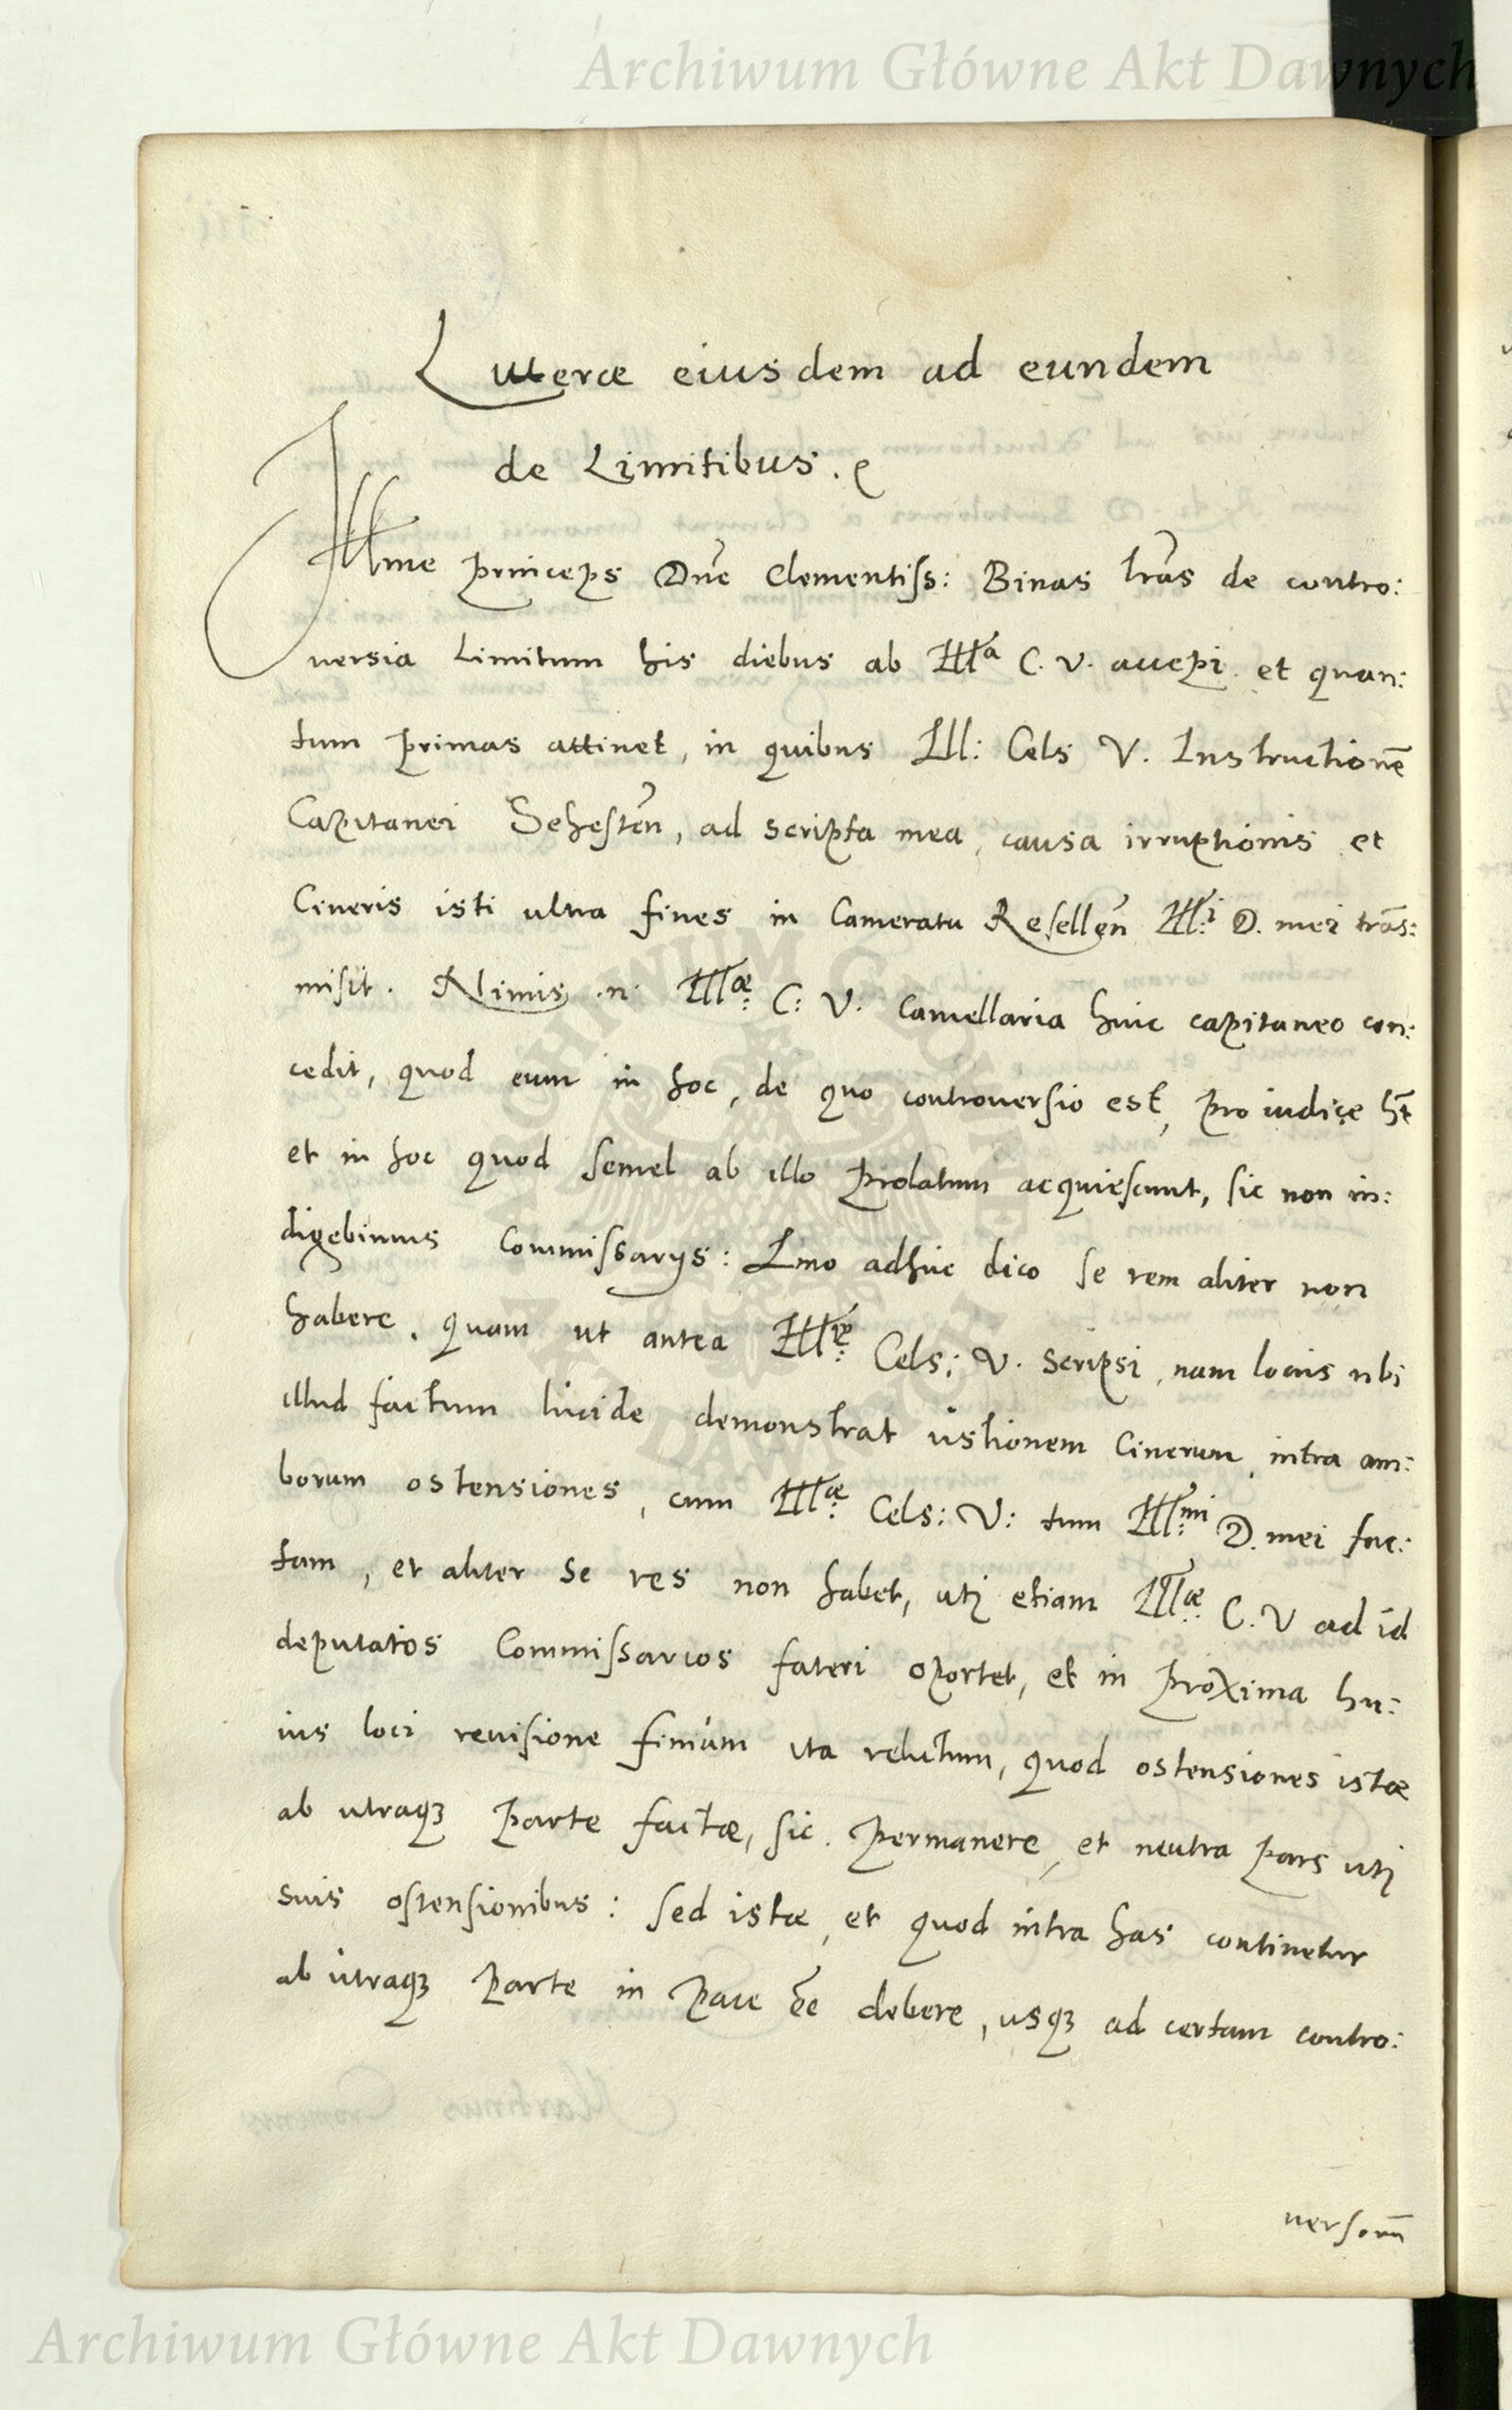 Archiwum Główne Akt Dawnych
Litterae eiusdem ad eundem
de Limitibus.
Illme princeps Dne Clementiss: Binas lras de contro:
uersia Limitum his diebus ab Illa C. V. accepi et quan:
tum primas attinet, in quibus Ill: Cels V. Instructione
Capitanei Sehesten, ad scripta mea, causa irruptionis et
Cineris isti ultra fines in Cameratu Resellen Ill:i D. mei tras:
misit. Nimis .n. Illae: C: V. Cancellaria huic capitaneo con:
cedit, quod eum in hoc, de quo controuersio est, pro iudice ht
et in hoc quod semel ab illo prolatum acquiescunt, sic non in:
digebimus Commissarijs: Imo adhuc dico se rem aliter non
habere. quam ut antea Illae: Cels: V. scripsi, nam locus ubi
illud factum lucide demonstrat ustionem Cinerum, intra am:
borum ostensiones, cum Illae: Cels: V: tum Ill:mi D. mei fac:
tam, et aliter se res non habet, uti etiam Illae: C. V ad id
deputatos Commissarios fateri oportet, et in proxima hu:
ius loci reuisione finium ita relictum, quod ostensiones istae
ab utraque parte factae, sic permanere, et neutra pars uti
suis ostensionibus: sed istae, et quod intra has continetur
ab utraque parte in pace ee debere, usque ad certam contro:
uersoru
ARCHIWUM GŁÓWNE AKT DAWNYCH
Archiwum Główne Akt Dawnych